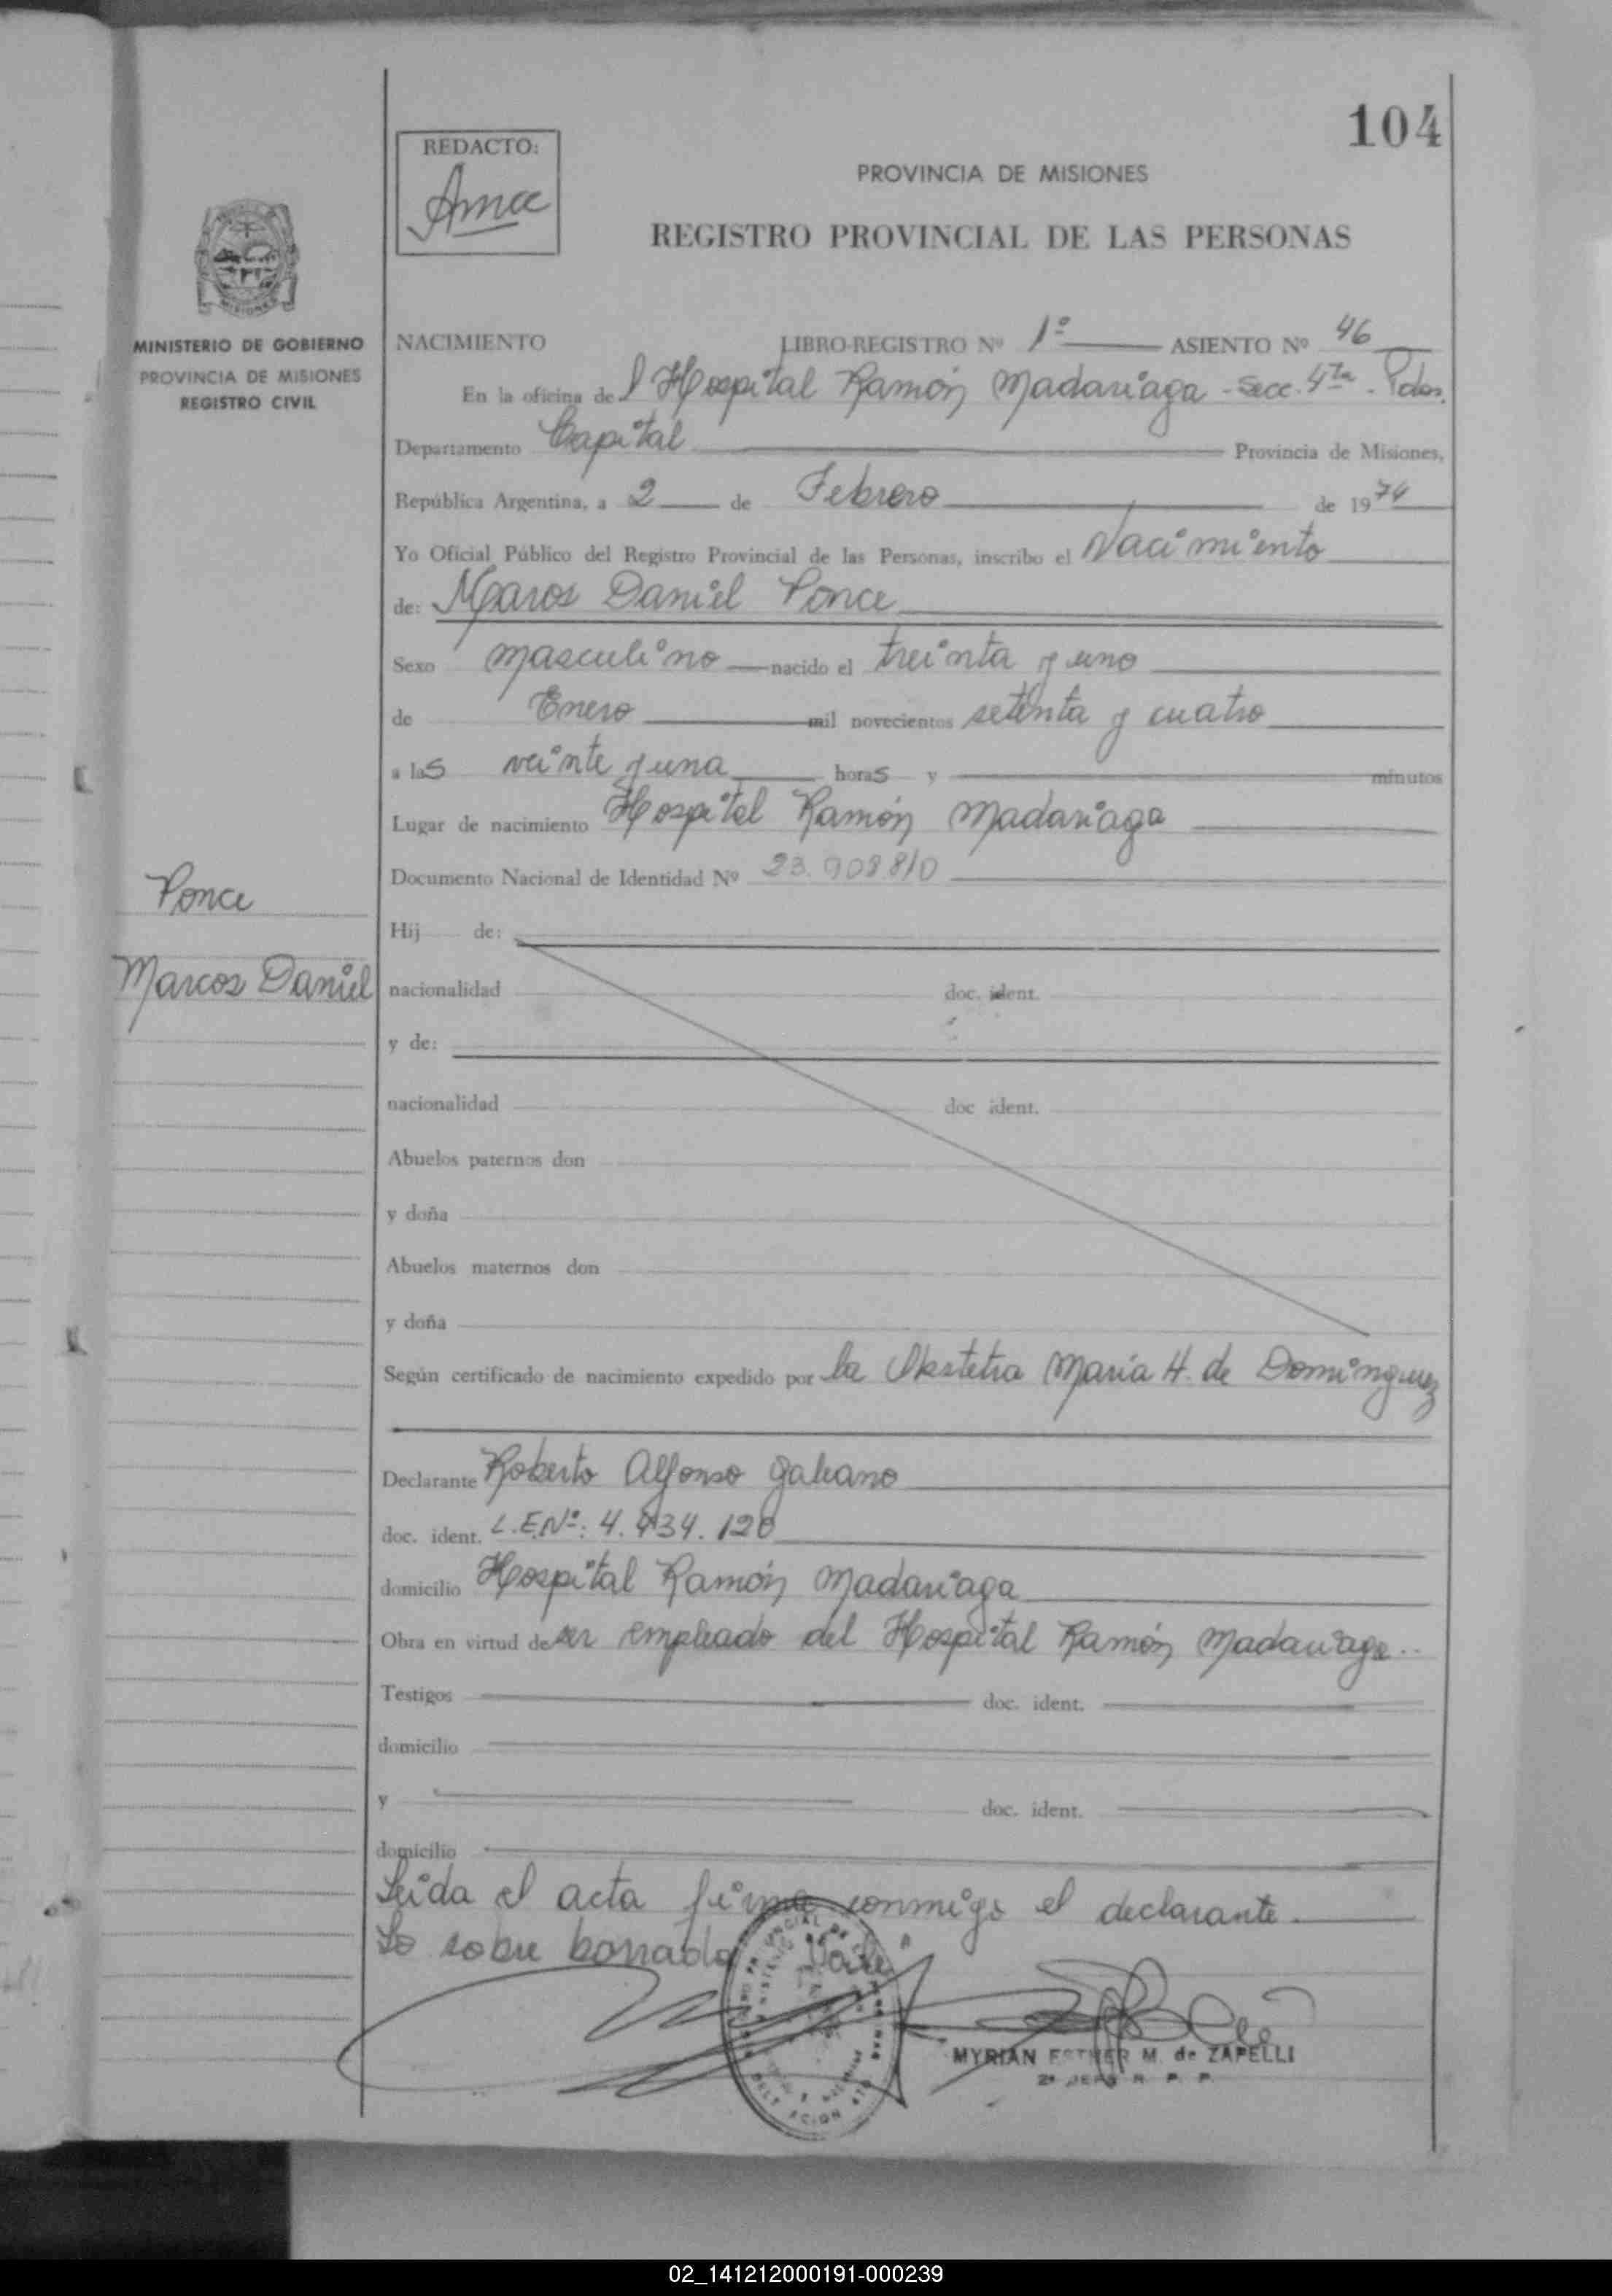 104
REDACTO:
PROVINCIA DE MISIONES
REGISTRO PROVINCIAL DE LAS PERSONAS
MISIONES
MINISTERIO DE GOBIERNO
PROVINCIA DE MISIONES
REGISTRO CIVIL
NACIMIENTO LIBRO-REGISTRO Nº 1º ASIENTO Nº 46
En la oficina de l Hospital Ramón Madariaga - Secc. 4ta - Pdas.
Departamento Capital Provincia de Misiones,
República Argentina, a 2 de Febrero de 1974
Yo Oficial Público del Registro Provincial de las Personas, inscribo el Nacimiento
de: Maros Daniel Ponce
Sexo masculino nacido el treinta y uno
de Enero mil novecientos setenta y cuatro
a las veinte y una horas y minutos
Lugar de nacimiento Hospital Ramón Madariaga
Documento Nacional de Identidad Nº 23.908.810
Ponce
Marcos Daniel
Hij de:
nacionalidad doc. ident.
y de:
nacionalidad doc ident.
Abuelos paternos don
y doña
Abuelos maternos don
y doña
Según certificado de nacimiento expedido por la Obstetra María H. de Dominguez
Declarante Roberto Alfonso Galeano
doc. ident. L.E.Nº: 4.434.120
domicilio Hospital Ramón Madariaga
Obra en virtud de ser empleado del Hospital Ramón Madariaga..
Testigos doc. ident.
domicilio
y doc. ident.
domicilio
Leida el acta firma conmigo el declarante.
Lo sobre borrado Vale
MYRIAN ESTHER M. de ZAPELLI
2º JEFE R. P. P.
02_141212000191-000239